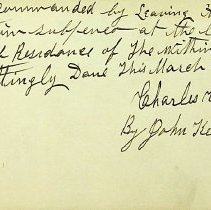 commanded by Leaving
Subpena at the
Residence of The Within
ttingly Done This March
Charles
By John